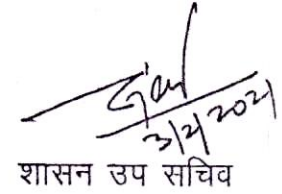 3/2/2021
शासन उप सचिव